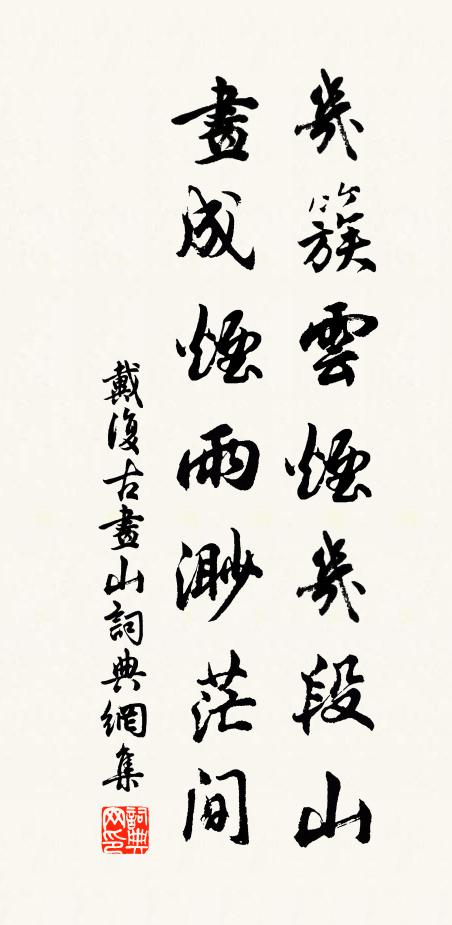 幾簇雲煙幾段山
畫成煙雨渺茫间
戴復古畫山詞典網集
詞典網印